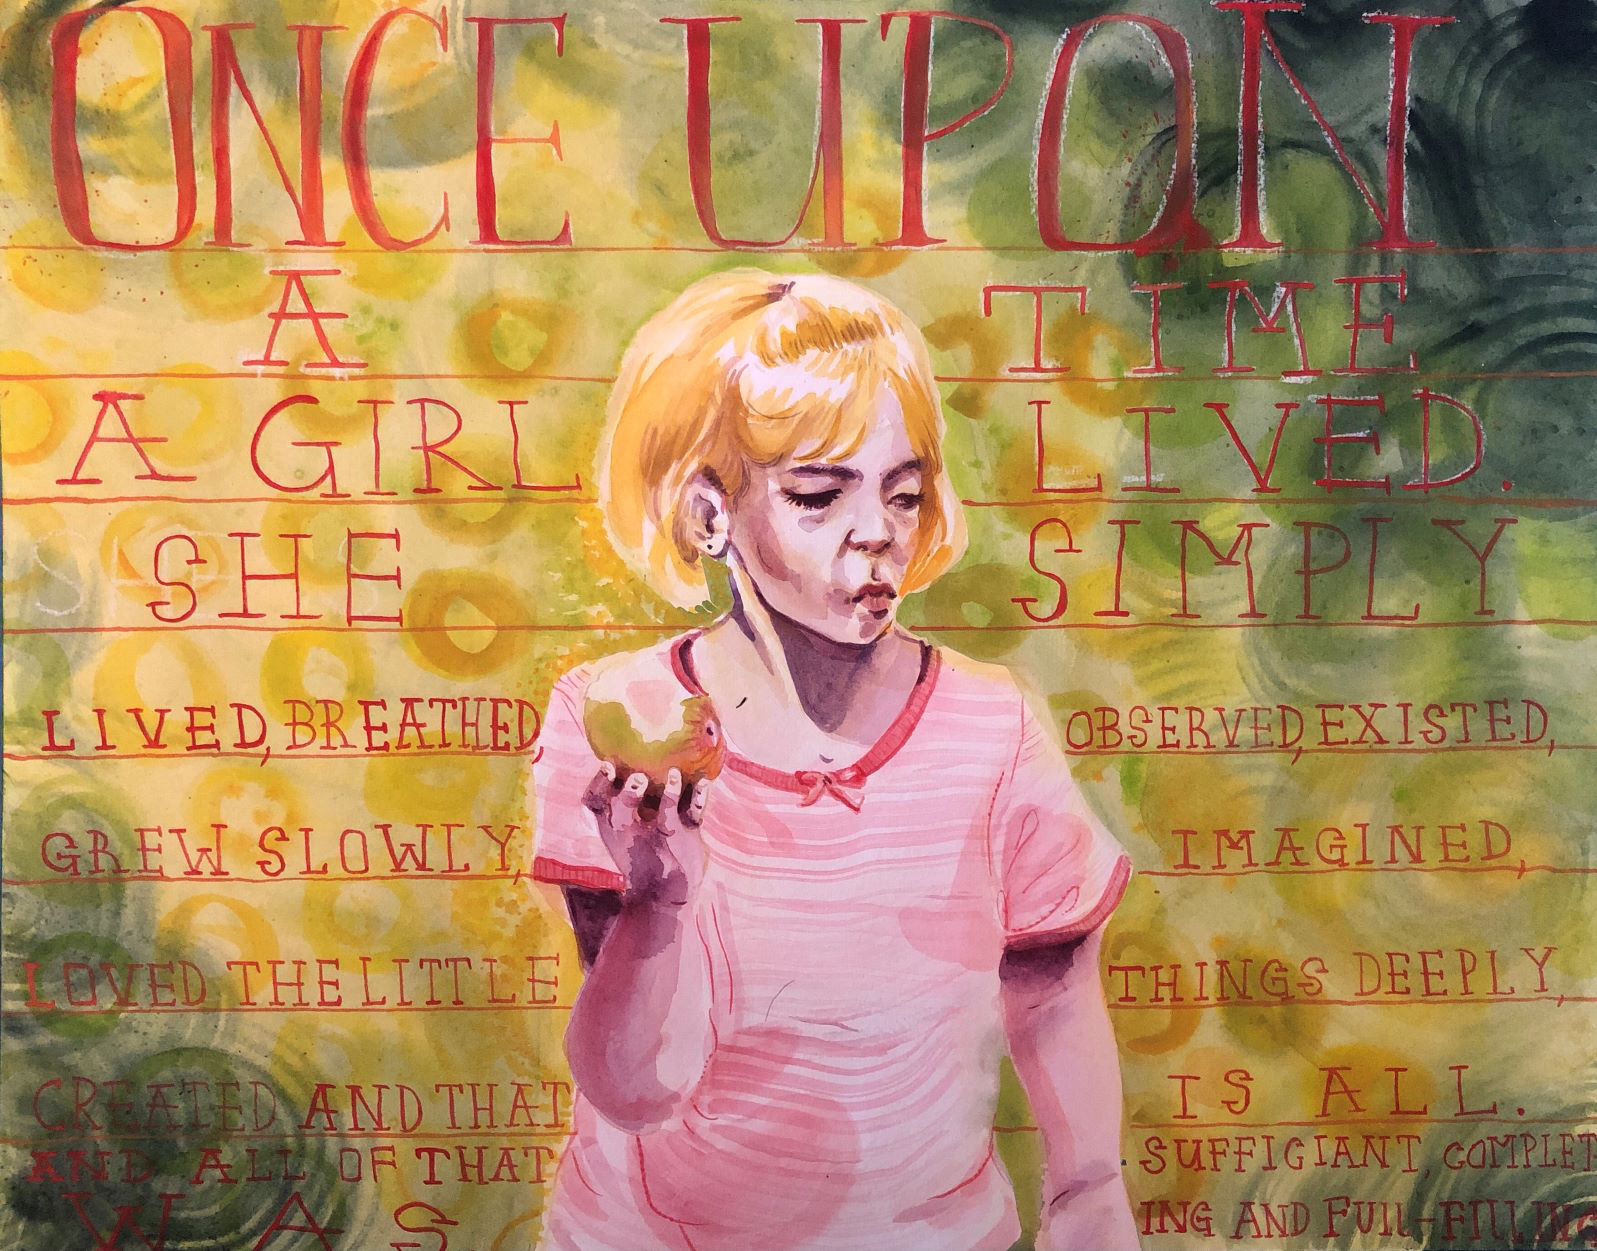 ONCE UPON
A TIME
A GIRL LIVED.
SHE SIMPLY
LIVED, BREATHED, OBSERVED, EXISTED,
GREW SLOWLY, IMAGINED,
LOVED THE LITTLE THINGS DEEPLY,
CREATED AND THAT IS ALL.
AND ALL OF THAT SUFFIGIANT, COMPLET
WAS ING AND FULL-FILLING